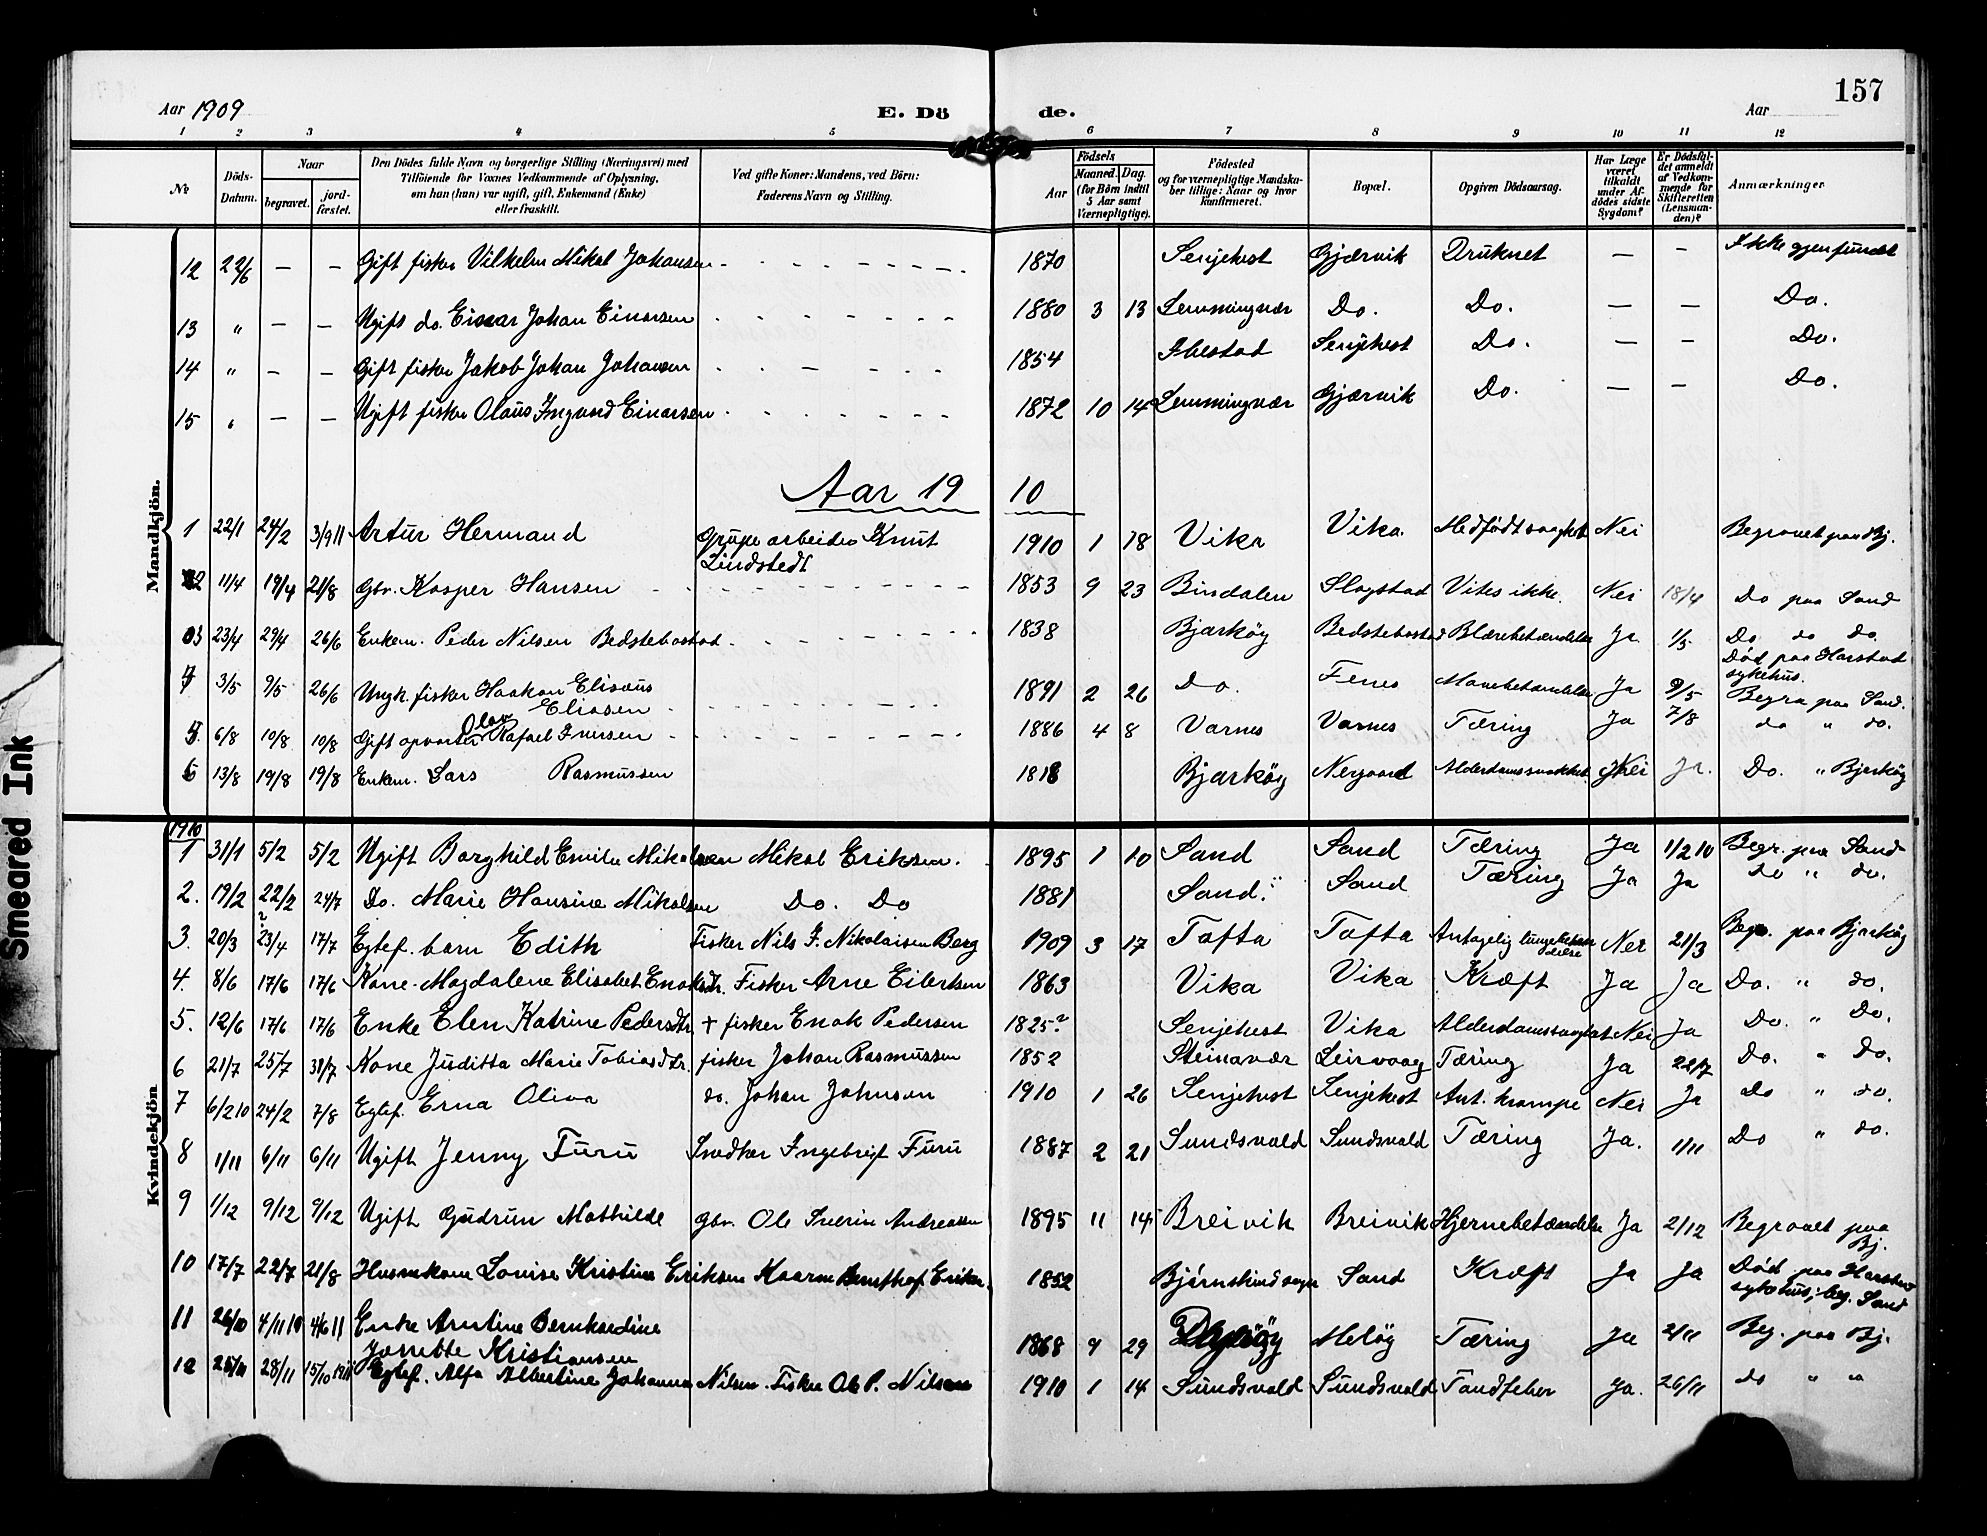 157
Aar 1909 E. Dö de. Aar
1 2 3 4 5 6 7 8 9 10 11 12
No
Döds-Datum.
Naar
begravet.
jord-fæstet.
Den Dödes fulde Navn og borgerlige Stilling (Næringsvei) med
Tilföiende for Voxnes Vedkommende af Oplysning,
om han (hun) var ugift, gift, Enkemand (Enke)
eller fraskilt.
Ved gifte Koner: Mandens, ved Börn:
Faderens Navn og Stilling.
Födsels
Aar
Maaned. Dag.
(for Börn indtil
5 Aar samt
Værnepligtige).
Födested
og for værnepligtige Mandska-
ber tillige: Naar og hvor
konfirmeret.
Bopæl.
Opgiven Dödsaarsag.
Har Læge
været
tilkaldt
under Af-
dödes sidste
Sygdom?
Er Dödsfal-
det anmeldt
af Vedkom-
mende for
Skifteretten
(Lensman-
den)?
Anmærkninger
Mandkjön.
12 22/6 – – Gift fisker Vilhelm Mikal Johansen 1870 Senjehest Gjærvik Druknet – – Ikke gjenfundet
13 " – – Ugift do. Einar Johan Einarsen 1880 3 13 Lemmingvær Do. Do. – – Do.
14 " – – Gift fisker Jakob Johan Johansen 1854 Ibestad Senjehest Do. – – Do.
15 " – – Ugift fisker Olaus Ingvard Einarsen 1872 10 14 Lemmingvær Gjærvik Do. – – Do.
Aar 1910
1 22/1 24/2 3/9 11 Artur Hermand Grubearbeider Knut Lindstedt 1910 1 18 Vika Vika. Medfödt svaghet Nei Begravet paa Bj.
2 11/4 19/4 21/8 Gbr. Kasper Hansen 1853 9 23 Bindalen Slagstad Vites ikke. Nei 18/4 Do paa Sand
3 23/4 29/4 26/6 Enkem. Peder Nilsen Bedstebostad 1838 Bjarköy Bedstebostad Blærebetændelse Ja 1/5 Do do Do
4 3/5 9/5 26/6 Ungk. fisker Haakon Elisæus Eliasen 1891 2 26 Do. Fenes Mavebetændelse Ja 9/5 Död paa Harstad sykehus. Begra paa Sand.
5 6/8 10/8 10/8 Gift opvarter Olav Rafael Iversen 1886 4 8 Varnes Varnes Tæring Ja 7/8 do " do.
6 13/8 19/8 19/8 Enkem. Lars Rasmussen 1818 Bjarköy Nergaard Alderdomssvakhet Nei Ja. Do. " Bjarköy
Kvindekjön
1910
1 31/1 5/2 5/2 Ugift Borghild Emilie Mikalsen Mikal Eriksen. 1895 1 10 Sand Sand Tæring Ja 1/2 10 Begr. paa Sand
2. 19/2 22/2 24/7 Do. Marie Hansine Mikalsen Do. Do 1881 Sand. Sand Tæring Ja Ja do " do.
3. 20/3 23/4 17/7 Egtef. barn Edith Fisker Nils J. Nikolaisen Berg 1909 3 17 Tofta Tofta Antagelig lungebetændelse Nei 21/3 Begr. paa Bjarköy
4. 8/6 17/6 17/6 Kone Magdalene Elisabet Enoksdtr. Fisker Arne Eilertsen 1863 Vika Vika Kræft Ja Ja Do. " do.
5. 12/6 17/6 17/6 Enke Elen Katrine Pedersdtr. + fisker Enok Pedersen 1825? Senjehest Vika Alderdomssvaghet Nei Ja Do. " Do.
6 21/7 25/7 31/7 Kone Juditta Marie Tobiasdtr. fisker Johan Rasmussen 1852 Steinavær Leirvaag Tæring Ja 22/7 Do. " Do.
7 6/2 10 24/2 7/8 Egtef. Erna Oliva do. Johan Johnsen 1910 1 26 Senjehest Senjehest Ant. krampe Nei Ja Do " do.
8 1/11 6/11 6/11 Ugift Jenny Furu Snedker Ingebrigt Furu 1887 2 21 Sundsvald Sundsvald Tæring Ja. 1/11 Do " do.
9 1/12 9/12 9/12 Ugift Gudrun Mathilde gbr. Ole Severin Andreassen 1895 11 14 Breivik Breivik Hjernebetændelse Ja 2/12 Begravet paa Bj.
10 17/7 22/7 21/8 Husmkone Lovise Kristine Eriksen 1852 Sand Kræft Ja Ja Död paa Harstad sykehus; beg. Sand
11 26/10 4/11 10 4/6 11 Enke Arntine Bernhardine Janette Kristiansen 1868 9 29 Melöy Tæring Ja 2/11 Beg. paa Bj.
12 25/11 28/11 15/10 1911 Egtef. Alfa Albertine Johanna Nilsen. Fisker Ole P. Nilsen 1910 1 14 Sundsvald Sundsvald Tandfeber Ja. 26/11 do " "
Smeared Ink